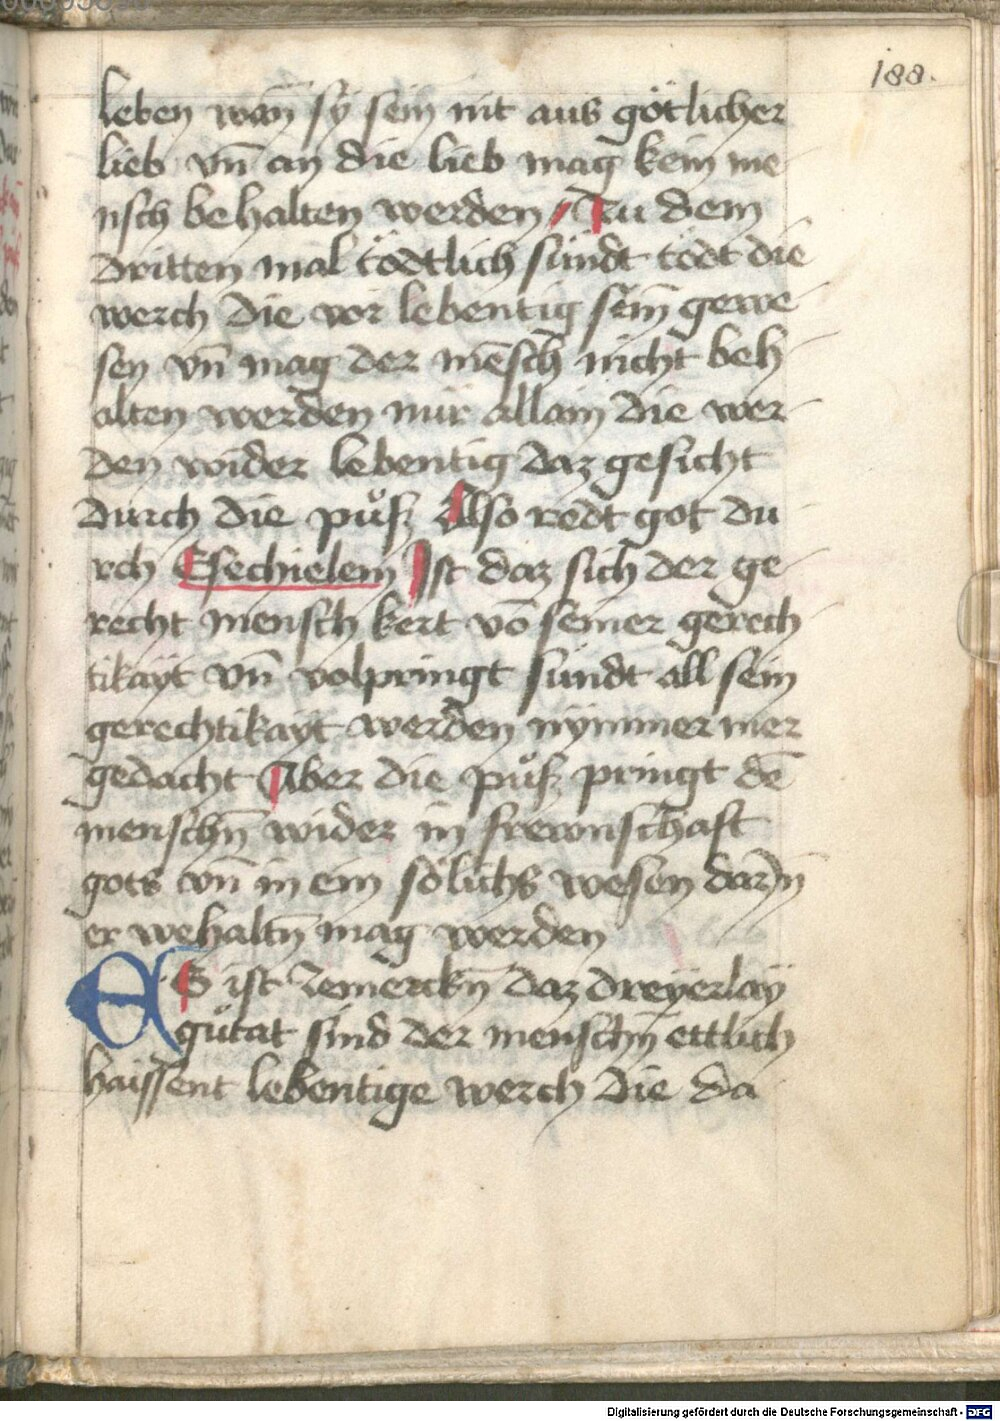 188.
leben wan̄ sy sein nit aus götlicher
lieb vn̄ an die lieb mag kein me
nsch behalten werden Zu dem
dritten mal tödtlich sündt tödt die
werch die vor lebentig sein gewe
sen vn̄ mag der mēsch nicht beh
alten werden nür allain die wer
den wider lebentig daz gesicht
durch die půß Also redt got du
rch Esechielem Ist daz sich der ge
recht mensch kert vō seiner gerech
tikayt vn̄ volpringt sündt all sein
gerechtikayt werden nymmer mer
gedacht Aber die půß pringt dē
menschn̄ wider in frewnschaft
gots vn̄ in ein sölichs wesen darīn
er wehaltn̄ mag werden
ES ist zemerckn̄ daz dreyerlay
gůtat sind der menschn̄ ettlich
haissent lebentige werch die da
Digitalisierung gefördert durch die Deutsche Forschungsgemeinschaft - DFG